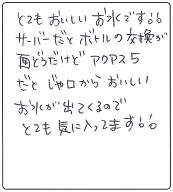 とても おいしい お水です!!
サーバーだと ボトルの交換が
面どうだけど アクアス5
だと じゃ口から おいしい
お水が 出てくるので
とても 気に入ってます!!